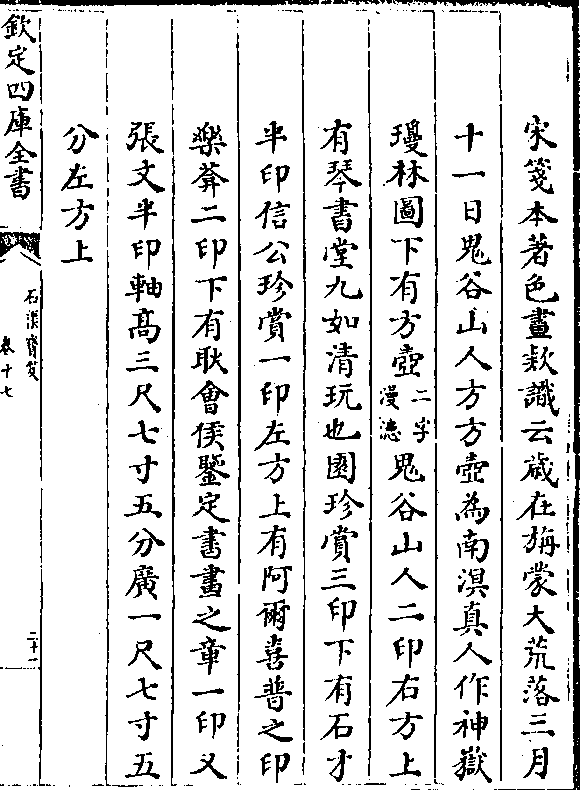 宋箋本著色畫欵識云歲在旃蒙大荒落三月
十一日鬼谷山人方方壺為南溟真人作神嶽
瓊林圖下有方壺二字漫漶鬼谷山人二印右方上
有琴書堂九如清玩也園珍賞三印下有石才
半印信公珍賞一印左方上有阿爾喜普之印
樂葊二印下有耿會侯鑒定書畫之章一印又
張文半印軸高三尺七寸五分廣一尺七寸五
分左方上
欽定四庫全書
石渠寶笈
卷十七
二十一